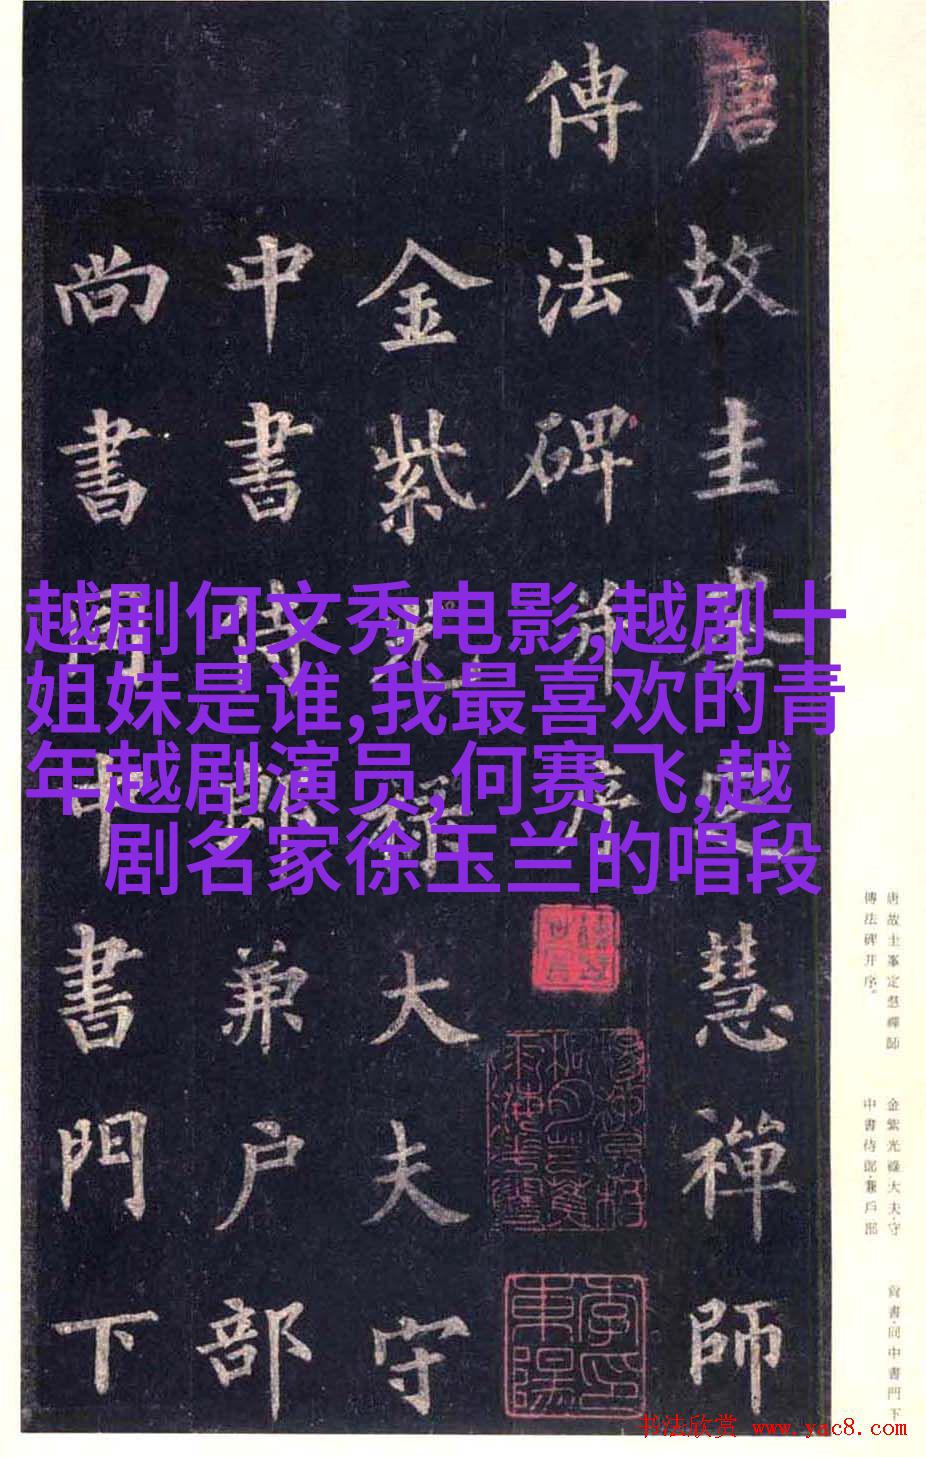 唐故圭峯定慧禪師
傳法碑并序
金紫光祿大夫守
中書侍郎兼户部
尚書同中書門下
越剧何文秀电影,越剧十
姐妹是谁,我最喜欢的青
年越剧演员,何赛飞,越
剧名家徐玉兰的唱段
唐故圭峯定慧禪師
傳法碑并序。
金紫光祿大夫·守
中書侍郎·兼戶部
尚書·同中書門下
书法欣赏 www.yac8.com